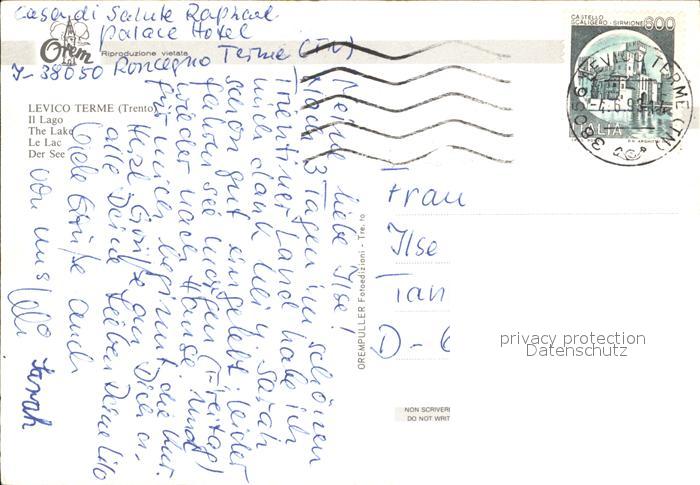 Casa di Salute Raphael
Palace Hotel
I-38050 Roncegno Terme (TN)
Orem
Riproduzione vietata
LEVICO TERME (Trento)
Il Lago
The Lake
Le Lac
Der See
Meine liebe Ilse!
Nach 3 Tagen im schönen
Trentiner Land habe ich
mich dank Uli u. Sarah
schon gut eingelebt, leider
fahren sie morgen (Freitag)
wieder nach Hause und
für mich beginnt die Kur.
Herzl. Grüße an Dich u.
alle Deine Lieben Deine Lilo
Viele Grüße auch
von uns Uli Sarah
OREMPULLER Fotoedizioni - Tre. to
CASTELLO
SCALIGERO - SIRMIONE 600
ITALIA
38056 LEVICO TERME (TN)
Frau
Ilse
Tan
D-6
privacy protection
Datenschutz
NON SCRIVERE
DO NOT WRIT